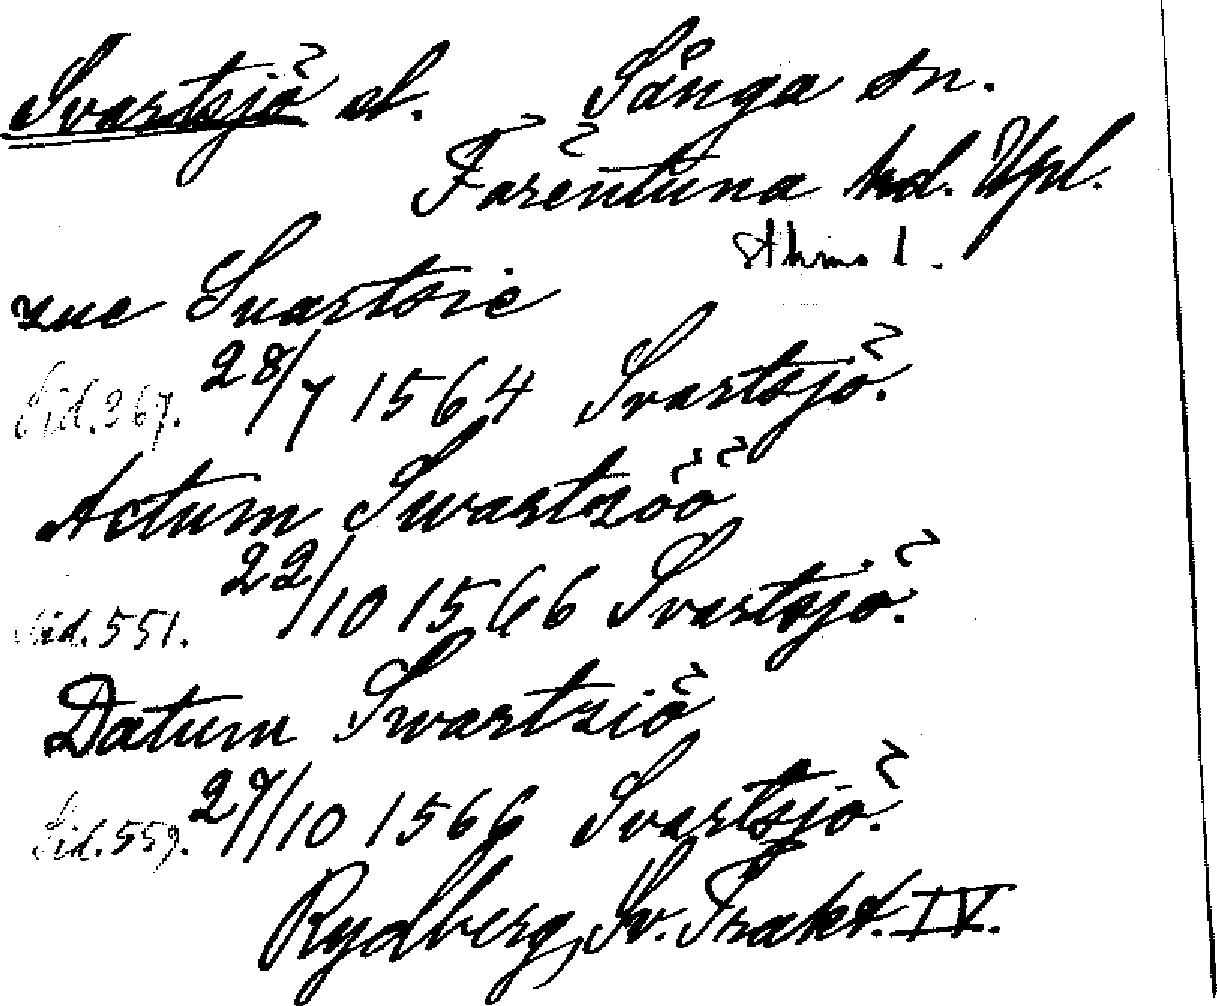 Svartsjö sl. Sånga sn.
Färentuna hd. Upl.
Sthms l.
zue Suartsie
Sid. 367. 28/7 1564 Svartsjö.
Actum Swartzöö
Sid. 551. 22/10 1566 Svartsjö.
Datum Swartziö
Sid. 559. 27/10 1566 Svartsjö.
Rydberg, Sv. Trakt. IV.